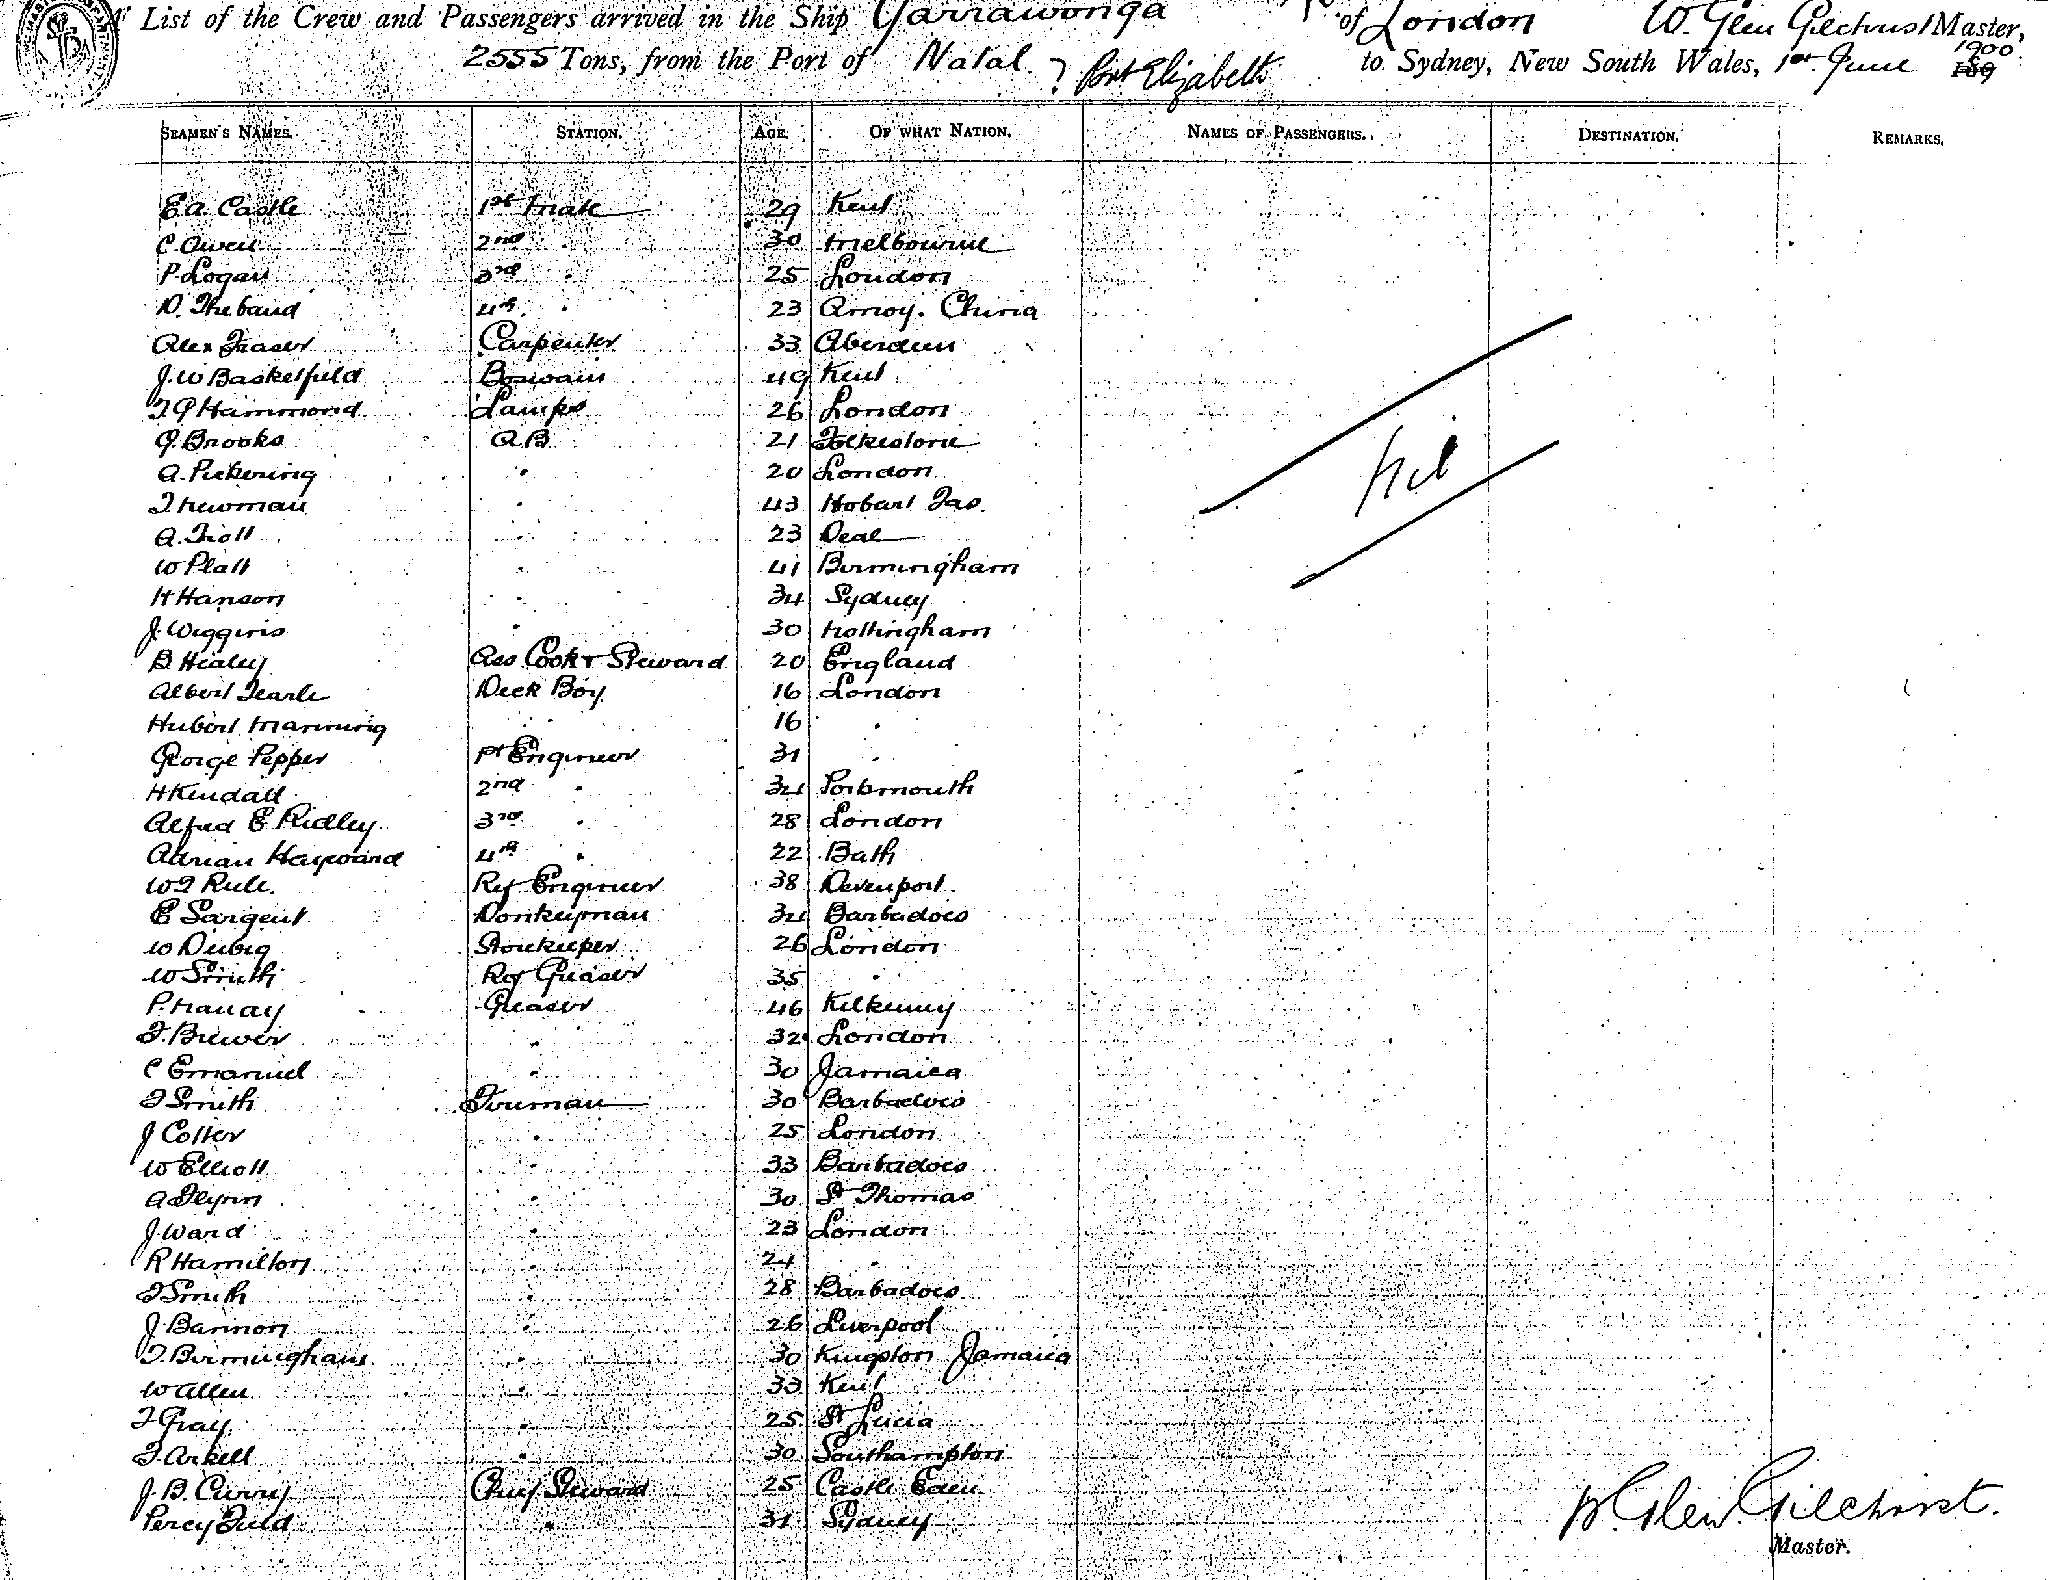 List of the Crew and Passengers arrived in the Ship Yarrawonga of London W. Glen Gilchrist Master,
2555 Tons, from the Port of Natal ? Port Elizabeth to Sydney, New South Wales, 1st June 1900 189
SEAMEN'S NAMES. STATION. AGE. OF WHAT NATION. NAMES OF PASSENGERS. DESTINATION. REMARKS.
E.A. Castle 1st Mate 29 Kent
C Owen 2nd " 30 Melbourne
P. Logan 3rd " 25 London
D. Thebaud 4th " 23 Amoy. China
Alex Fraser Carpenter 33 Aberdeen
J. W Basketfield Boswain 49 Kent
T G Hammond Lamps 26 London
G. Brooks A.B. 21 Folkestone
A. Pickering " 20 London
T Newman " 43 Hobart Tas.
A. Trott " 23 Deal
W Platt " 41 Birmingham
H Hanson " 34 Sydney
J. Wiggins " 30 Nottingham
B Healey Ass Cook & Steward 20 England
Albert Tearle Deck Boy 16 London
Hubert Manning " 16 "
George Pepper 1st Engineer 31 "
H Kendall 2nd " 34 Portsmouth
Alfred E Ridley 3rd " 28 London
Adrian Hayward 4th " 22 Bath
W J Rule. Rf Engineer 38 Devenport
E Sargent Donkeyman 34 Barbadoes
W Storekeeper 26 London
W Smith Rf Greaser 35 "
P. Greaser 46 Kilkenny
F. Brewer " 32 London
C Emanuel " 30 Jamaica
T Smith Fireman 30 Barbadoes
J Cotter " 25 London
W Elliott " 33 Barbadoes
A Flynn " 30 St Thomas
J. Ward " 23 London
R Hamilton " 24 "
T Smith " 28 Barbadoes
J Bannon " 26 Liverpool
T. Birmingham " 30 Kingston Jamaica
W Allen " 33 Kent
T Gray " 25 St Lucia
F. Arkell " 30 Southampton
J. B. Curry Chief Steward 25 Castle Eden
Percy Field " 31 Sydney
Nil
W. Glen Gilchrist.
Master.